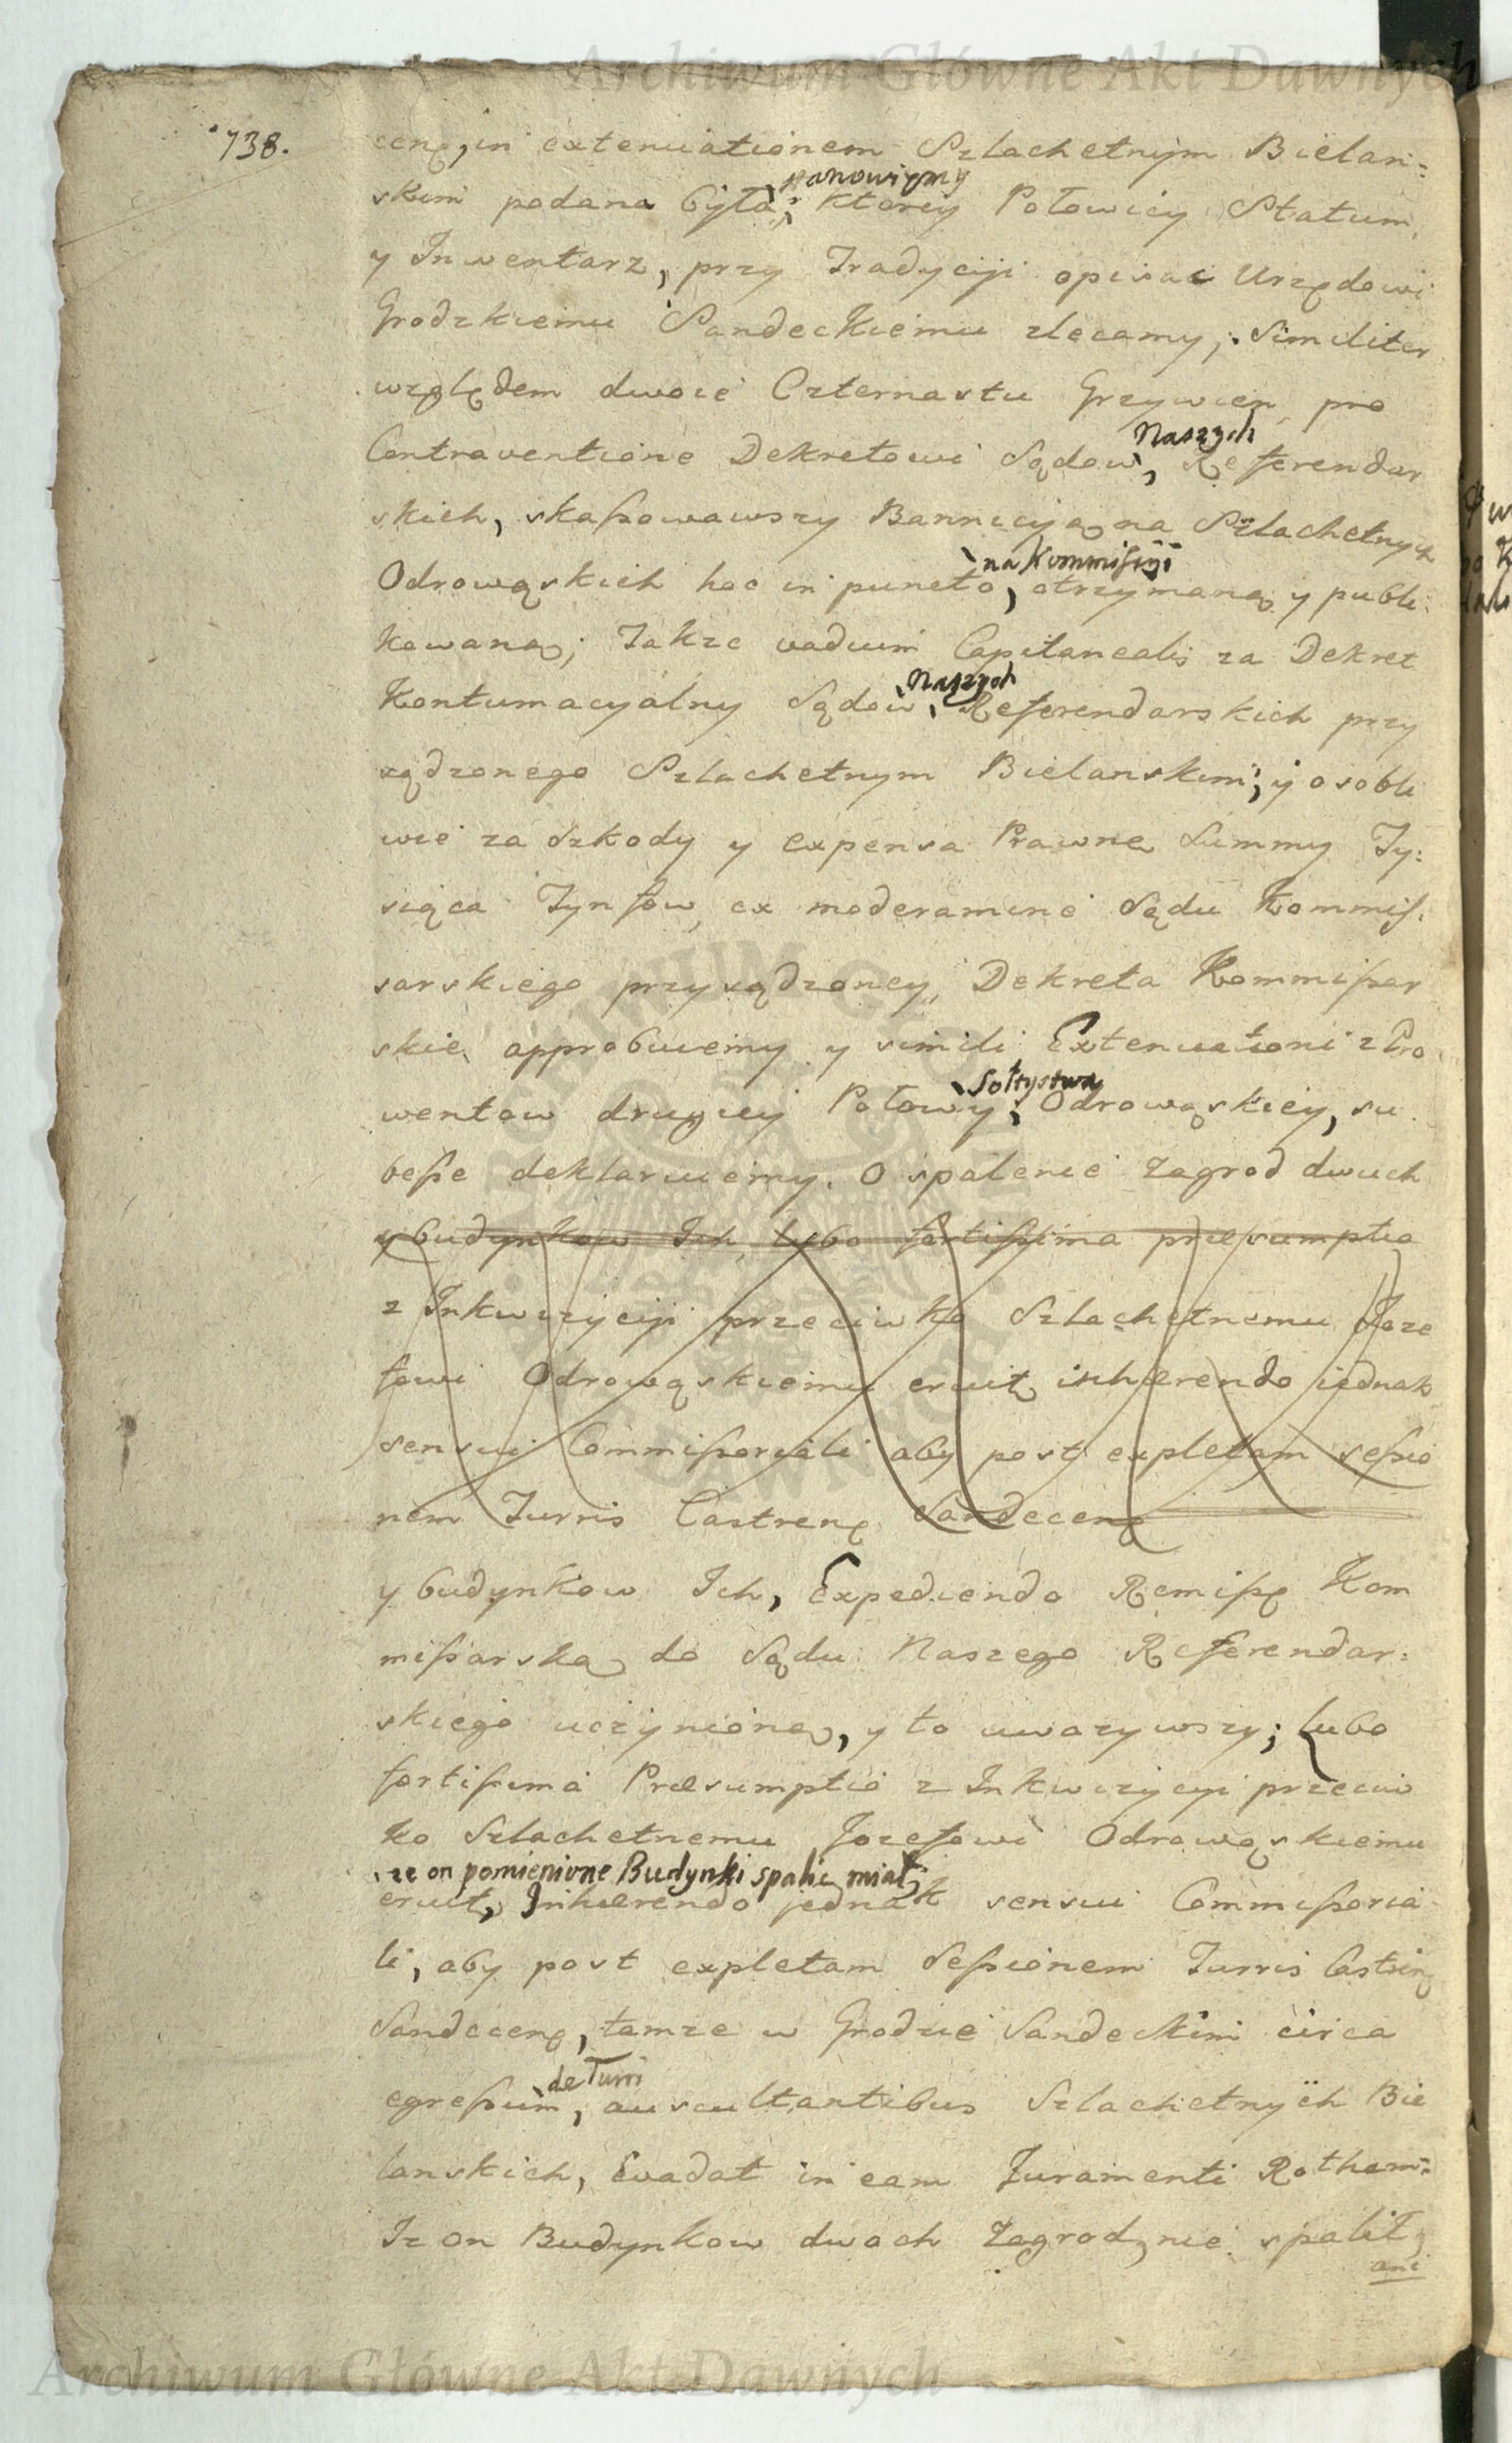 Archiwum Główne Akt Dawnych
738.
cenę, in extenuationem Szlachetnym Bielan:
stanowiemy
skim podana była; ktorey Połowicy Statum,
y Inwentarz, przy Tradycyi opisac Urzędowi
Grodzkiemu Sandeckiemu zlecamy; Similiter
względem dwoie Czternastu Grzywien pro
Naszych
Contraventione Dekretowi Sądow, Referendar
skich, skaßowawszy Bannicyją na Szlachetnych
na Kommissyi
Odrowąskich hoc in puncto, otrzymaną y publi:
kowaną; Takze vadium Capitanealis za Dekret
Naszych
Kontumacyalny Sądow, Referendarskich przy
sądzonego Szlachetnym Bielanskim; y osobli
wie za Szkody y expensa Prawne Summy Ty:
siąca Tynfow, ex moderamine Sądu Kommis:
sarskiego przysądzoney, Dekreta Kommißar
skie approbuiemy y simili Extenuationi z Pro
Sołtystwa
wentow drugiey Połowy, Odrowąskiey, su
beße deklaruiemy. O spalenie Zagrod dwuch
y budynkow Ich, lubo fortißima præsumptio
z Inkwizycyi przeciwko Szlachetnemu Joze
fowi Odrowąskiemu eruit, inhærendo iednak
sensui Commißoriali aby post expletam seßio
nem Turris Castrenę Sandecenę
y budynkow Ich, Expediendo Remißę Kom
mißarską do Sądu Naszego Referendar:
skiego uczynioną, y to uwazywszy; Lubo
fortißima Præsumptio z Inkwizycyi przeciw
ko Szlachetnemu Jozefowi Odrowąskiemu
ze on pomienione Budynki spalic miał;
eruit, Inhærendo jednak sensui Commißoria
li, aby post expletam Seßionem Turris Castrenę
Sandecenę, tamze w Grodzie Sandeckim circa
de Turri
egreßum, auscultantibus Szlachetnych Bie
lanskich, Evadat in eam Juramenti Rotham:
Iz on Budynkow dwoch Zagrod, nie spalił,
ani
Archiwum Główne Akt Dawnych